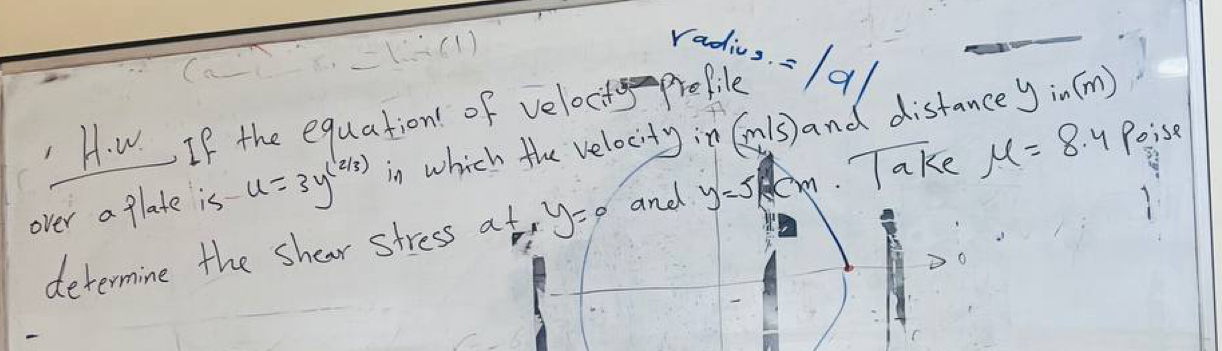 radius.= |a|
H.W. If the equation of velocity profile
over a plate is u=3y^(2/3) in which the velocity in (m/s) and distance y in (m)
determine the shear stress at y=0 and y=5 cm. Take μ= 8.4 Poise